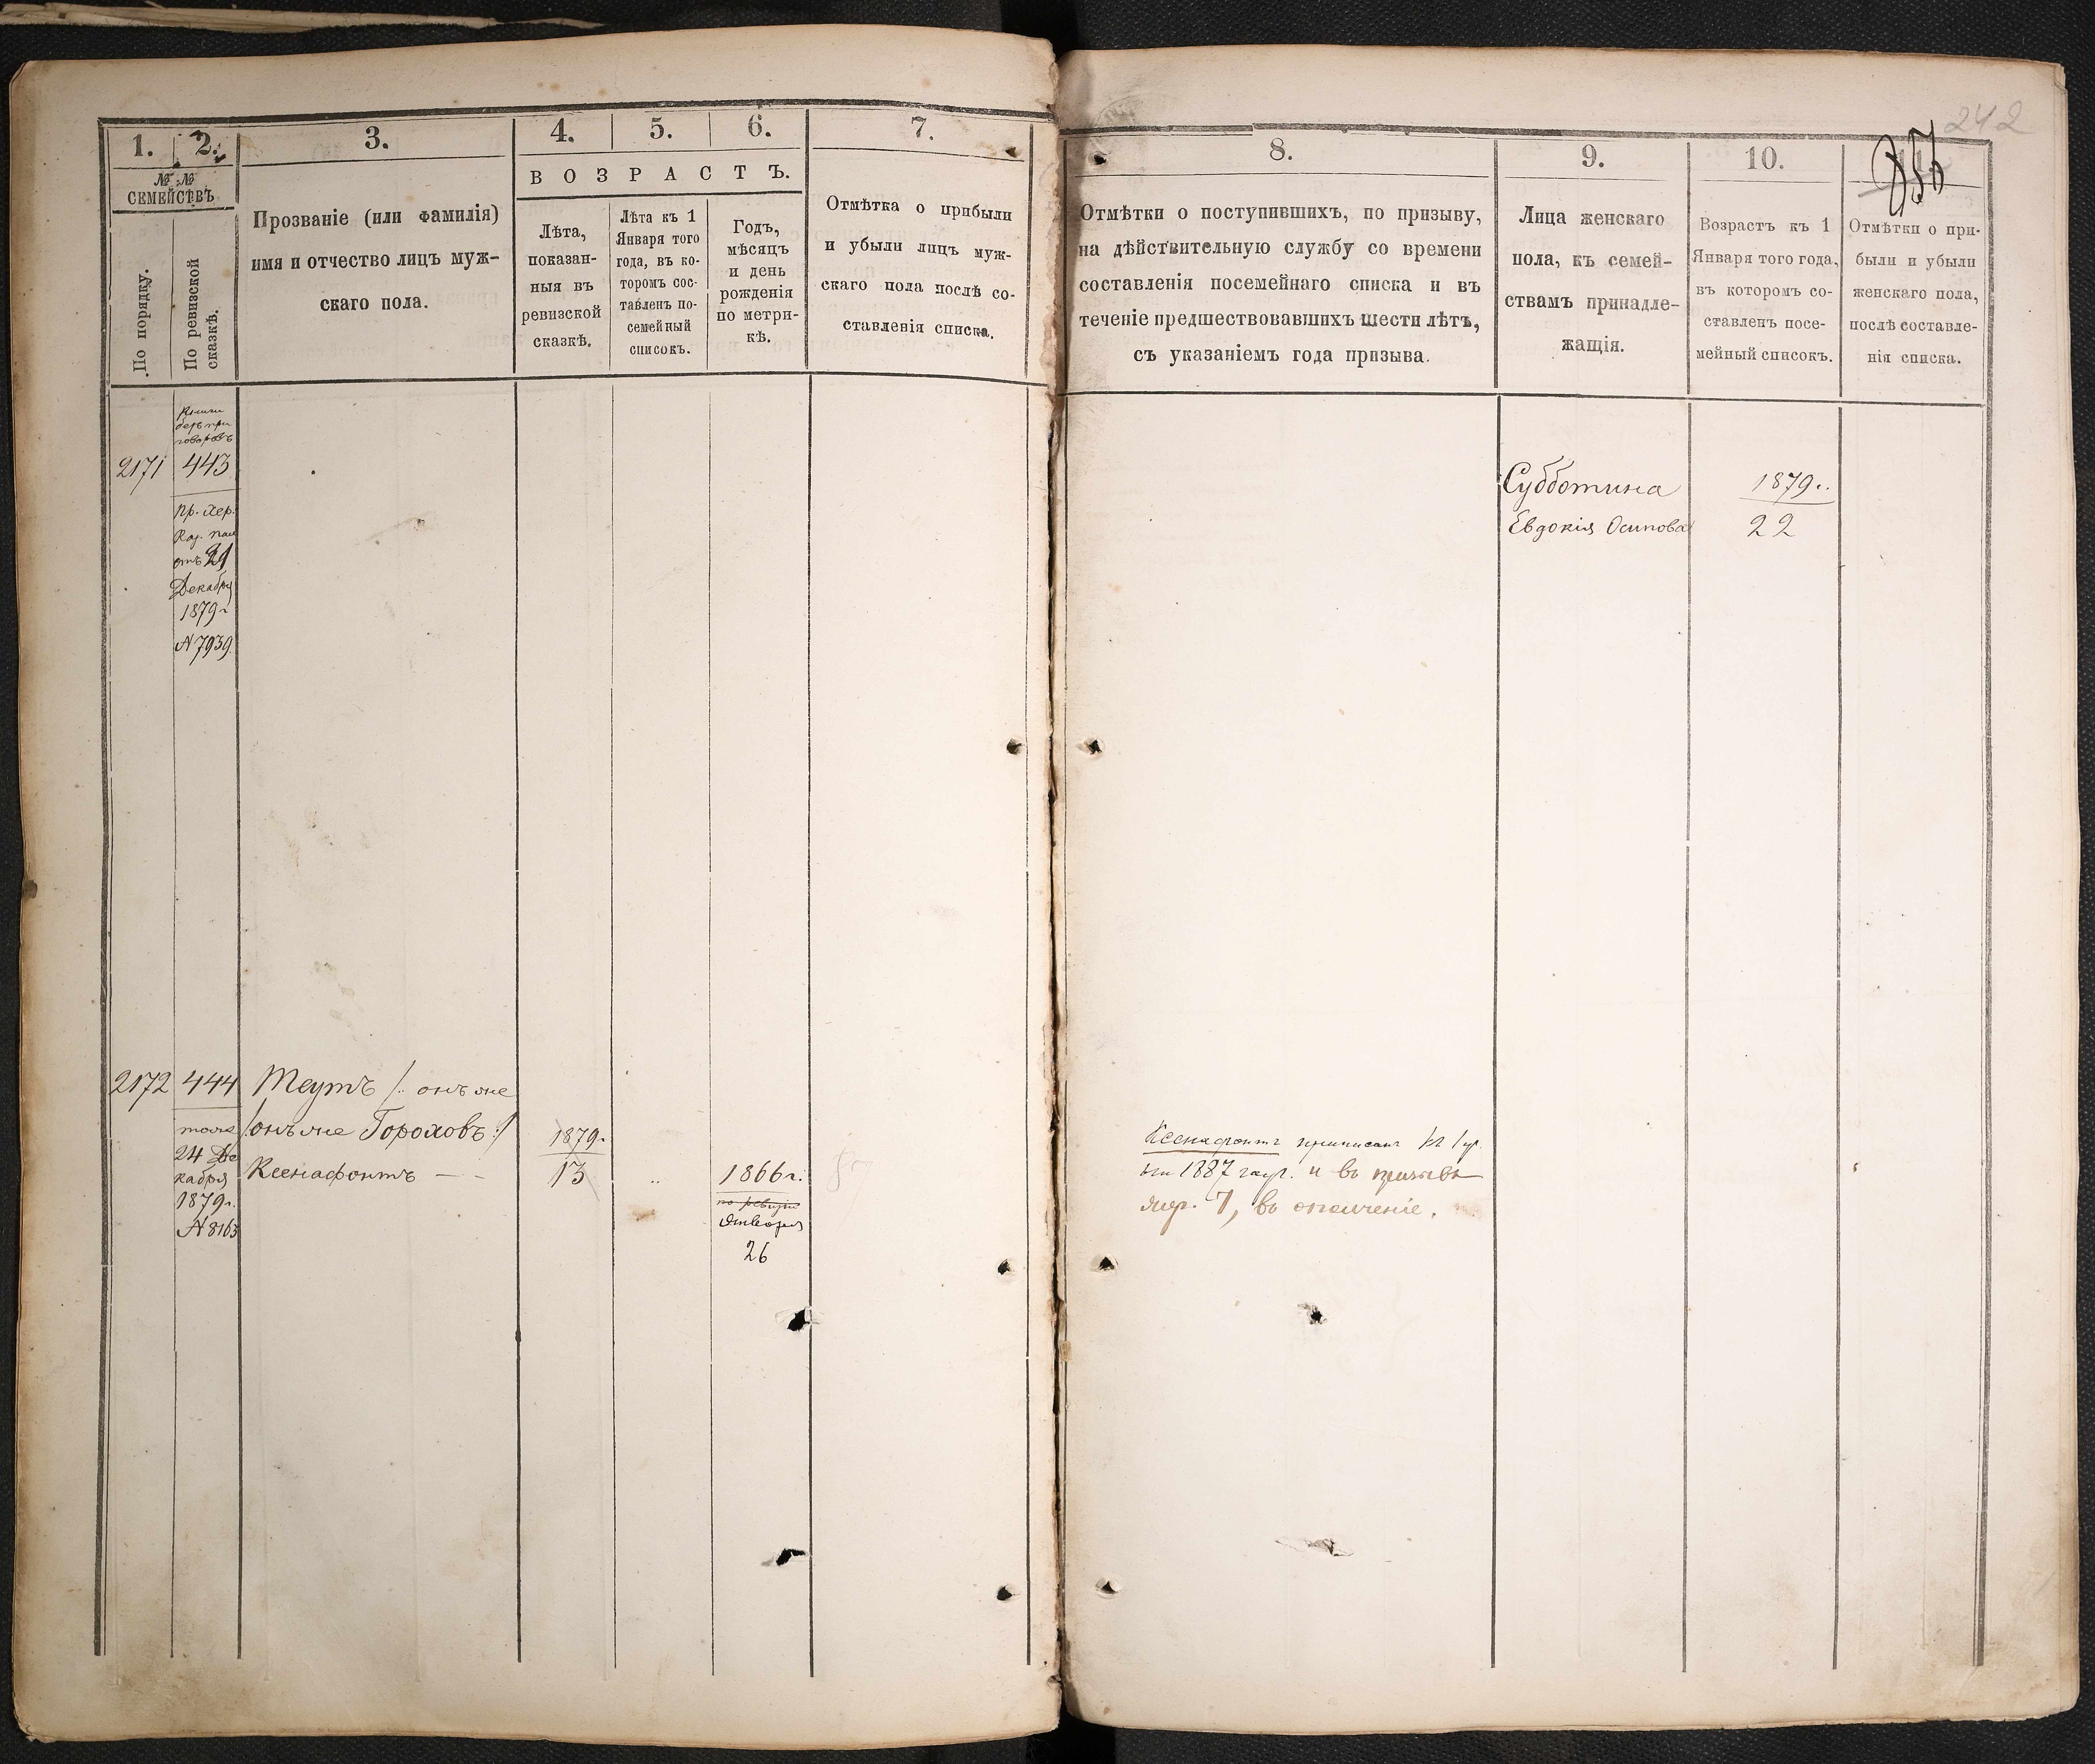 242
856
1.
2.
3.
4.
5.
6.
7.
№ №
СЕМЕЙСТВЪ
По порядку.
По ревизской
сказкѣ.
Прозваніе (или фамилія)
имя и отчество лицъ муж-
скаго пола.
ВОЗРАСТЪ.
Лѣта,
показан-
ныя въ
ревизской
сказкѣ.
Лѣта къ 1
Января того
года, въ ко-
торомъ сос-
тавленъ по-
семейный
списокъ.
Годъ,
мѣсяцъ
и день
рожденія
по метри-
кѣ.
Отмѣтка о прибыли
и убыли лицъ муж-
скаго пола послѣ со-
ставленія списка.
8.
9.
10.
Отмѣтки о поступившихъ, по призыву,
на дѣйствительную службу со времени
составленія посемейнаго списка и въ
теченіе предшествовавшихъ шести лѣтъ,
съ указаніемъ года призыва.
Лица женскаго
пола, къ семей-
ствамъ принадле-
жащія.
Возрастъ къ 1
Января того года,
въ которомъ со-
ставленъ посе-
мейный списокъ.
Отмѣтки о при-
были и убыли
женскаго пола,
послѣ составле-
нія списка.
2171
443
отъ 21
Декабря
1879 г
№ 7939
Субботина
Евдокія Осипова
1879 г.
22
2172
444
24 Де
кабря
1879 г.
№ 8163
Теутъ /: онъ же
/онъ же Гороховъ :/
Ксенафонтъ — -
1879.
13
1866 г.
Января
26
Ксенафонтъ приписанъ къ
1887 и въ призывъ
7, въ ополченіе.